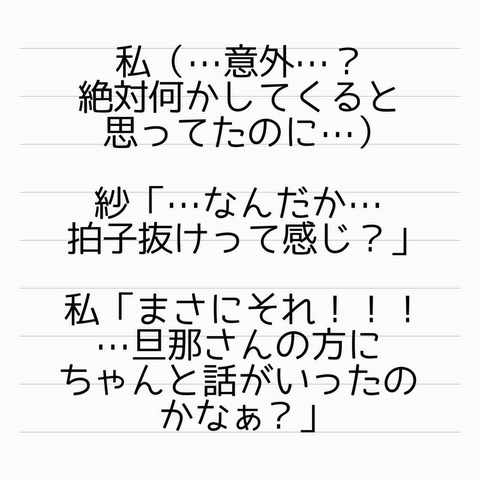 私（…意外…？
絶対何かしてくると
思ってたのに…）
紗「…なんだか…
拍子抜けって感じ？」
私「まさにそれ！！！
…旦那さんの方に
ちゃんと話がいったの
かなぁ？」